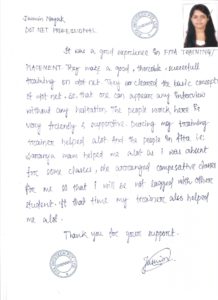 Jasmin Nayak,
DOT NET PROFESSIONAL.
It was a good experience in FITA TRAINING/
PLACEMENT They have a good, &
training on dot net. They are cleared the basic concepts
of dot net. so that one can appear any interview
without any hesitation. The people work here is
very friendly & supportive. During my training
trainer helped alot and the people in fita i.e.
mam helped me alot as I was absent
for some classes, she arranged compensative classes
for me so that I will be not lagged with other
student. At that time my trainers also helped
me alot.
Thank you for your support.